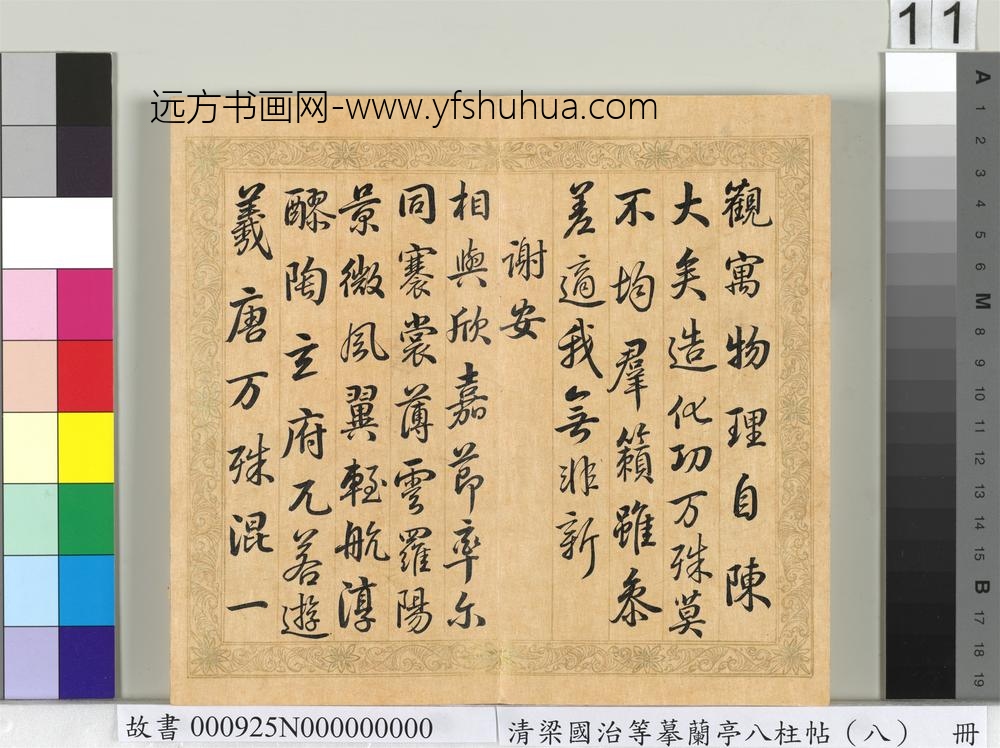 11
远方书画网-www.yfshuhua.com
觀寓物理自陳
大矣造化功万殊莫
不均羣籟雖參
差適我無非新
謝安
相與欣嘉節率尔
同褰裳薄雲羅陽
景微風翼輕航淳
醪陶玄府兀若遊
羲唐万殊混一
A 1 2 3 4 5 6 M 8 9 10 11 12 13 14 15 B 17 18 19
故書 000925N000000000
清梁國治等摹蘭亭八柱帖（八） 冊